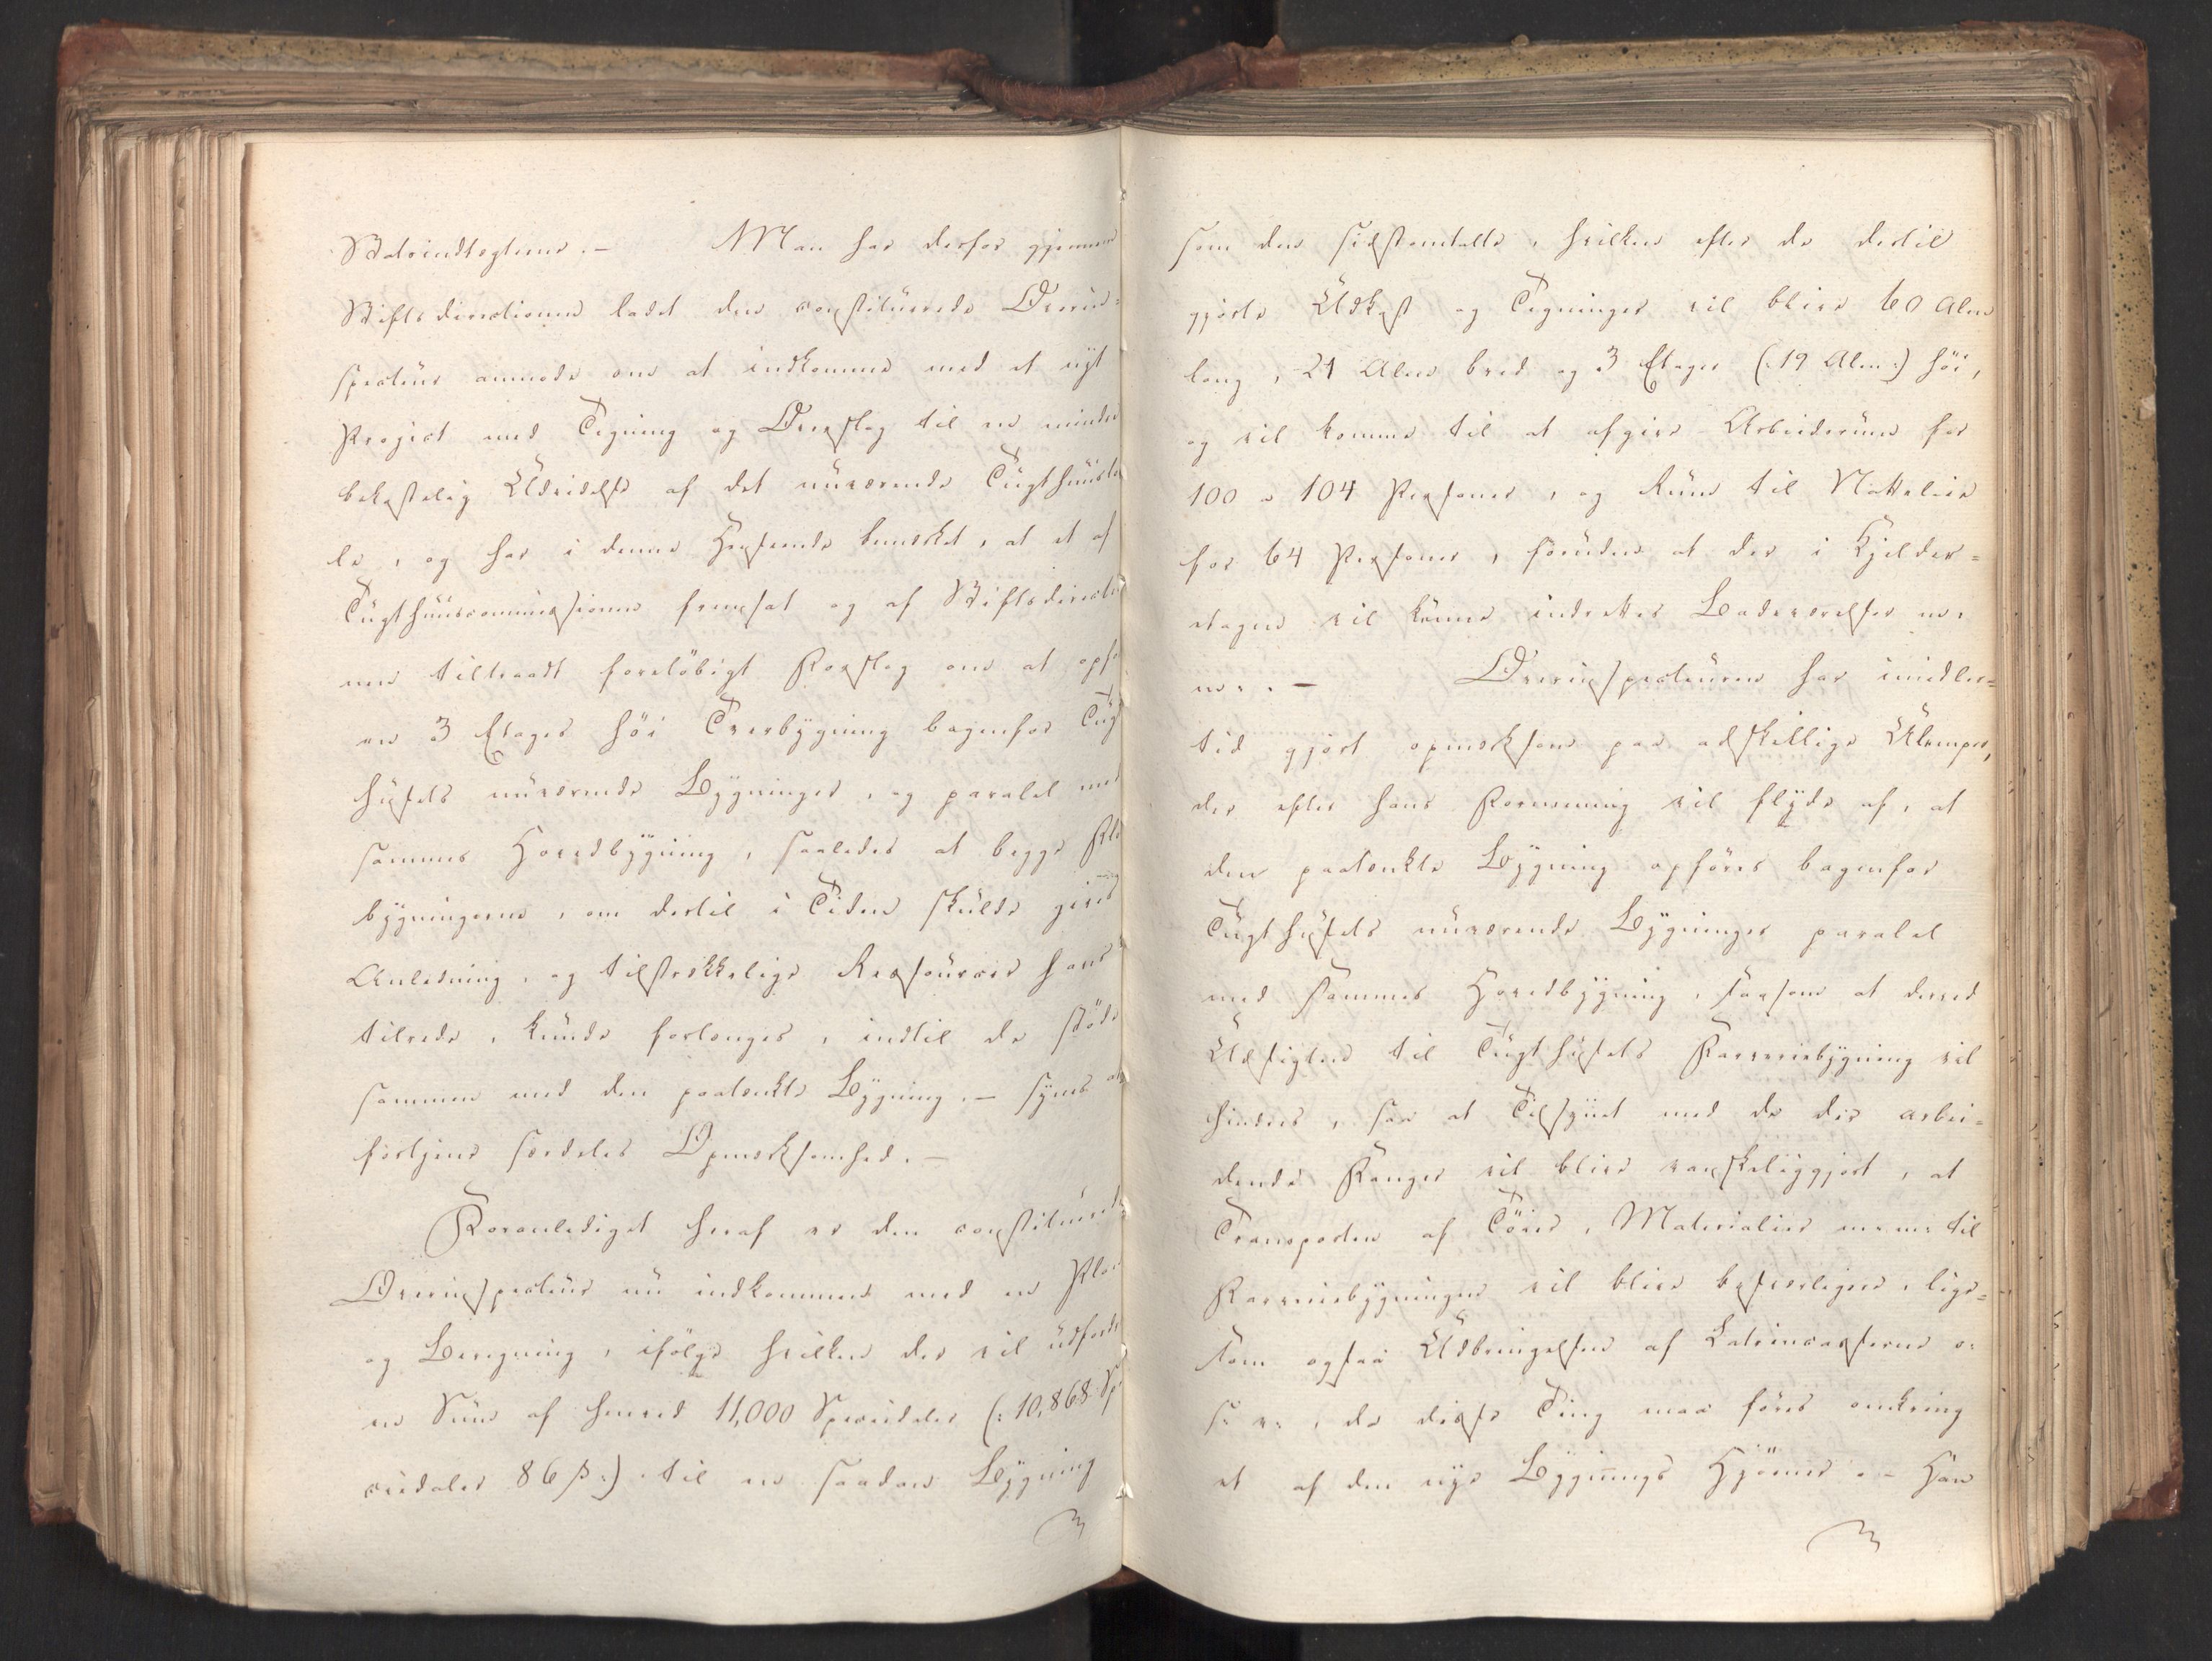 Statsindtægterne. – Man har derfor gjennem
Stiftsdirectionen ladet den constituerede Overin-
specteur anmode om at indkomme med et nyt
Project med Tegning og Overslag til en mindre
bekostelig Udvidelse af det nuværende Tugthuuslo
le, og har i denne Henseende bemærket, at et af
Tugthuuscommissionen fremsat og af Stiftsdirectio
nen tiltraadt foreløbigt Forslag om at opfø
en 3 Etages höi Tverbygning bagenfor Tugt
husets nuværende Bygninger, og paralel med
sammes Hovedbygning, saaledes at begge Flø
bygningerne, om dertil i Tiden skulde gives
Anledning, og tilstrækkelige Ressourcer haves
tilrede, kunde forlænges, indtil de støde
sammen med den paatænkte Bygning. – synes at
fortjene særdeles Opmærksomhed. –
Foranlediget heraf er den constituerede
Overinspecteur nu indkommen med en Plan
og Beregning, ifølge hvilken der vil udfordre
en Sum af henved 11,000 Speciedaler (: 10,868 Sp
ciedaler 86 ß :) til en saadan Bygning
som den sidstomtalte, hvilken efter de dertil
gjorte Udkast og Tegninger vil blive 60 Alen
lang, 21 Alen bred og 3 Etager (: 19 Alen :) höi,
og vil komme til at afgive Arbeidsrum for
100 a 104 Personer, og Rum til Natteleie
for 64 Personer, foruden at der i Kjelder-
etagen vil kunne indrettes Badeværelser m.
m.. – Overinspecteuren har imidler-
tid gjort opmærksom paa adskillige Ulemper,
der efter hans Formening vil flyde af, at
den paatænkte Bygning opføres bagenfor
Tugthusets nuværende Bygninger paralel
med sammes Hovedbygning, saasom at derved
Udsigten til Tugthusets Farveriebygning vil
hindres, saa at Tilsynet med de der arbei-
dende Fanger vil blive vanskeliggjort, at
Transporten af Töier, Materialier m. m. til
Farveriebygningen vil blive besværligere, lige-
som ogsaa Udbringelsen af Latrincasserne o:
s: v:, da disse Ting maa føres omkring
et af den nye Bygnings Hjørner. – Han